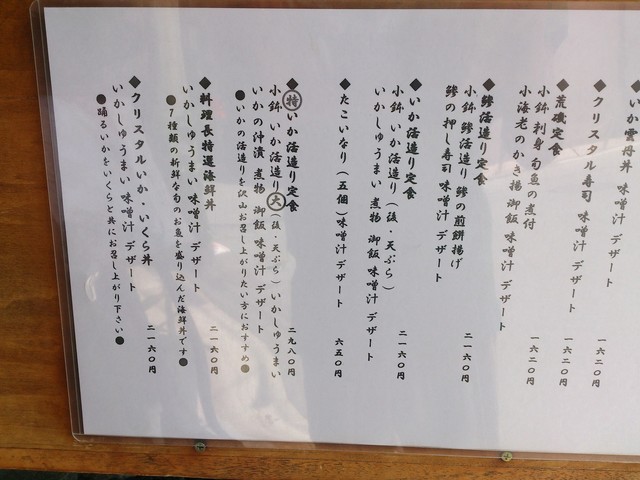 ◆いか雲丹丼
味噌汁 デザート
◆クリスタル寿司 味噌汁 デザート
一六二〇円
◆荒磯定食
一六二〇円
小鉢 刺身 旬魚の煮付
小海老のかき揚 御飯 味噌汁 デザート
一六二〇円
◆鯵活造り定食
小鉢 鯵活造り 鯵の煎餅揚げ
鯵の押し寿司 味噌汁 デザート
二一六〇円
◆いか活造り定食
小鉢 いか活造り(後・天ぷら)
いかしゅうまい 煮物 御飯 味噌汁 デザート
二一六〇円
◆たこいなり(五個)味噌汁 デザート
六五〇円
◆特いか活造り定食
二九八〇円
小鉢 いか活造り大(後・天ぷら) いかしゅうまい
いかの沖漬 煮物 御飯 味噌汁 デザート
●いかの活造りを沢山お召し上がりたい方におすすめ●
◆料理長特選海鮮丼
いかしゅうまい 味噌汁 デザート
二一六〇円
●7種類の新鮮な旬のお魚を盛り込んだ海鮮丼です●
◆クリスタルいか・いくら丼
いかしゅうまい 味噌汁 デザート
二一六〇円
●踊るいかをいくらと共にお召し上がり下さい●